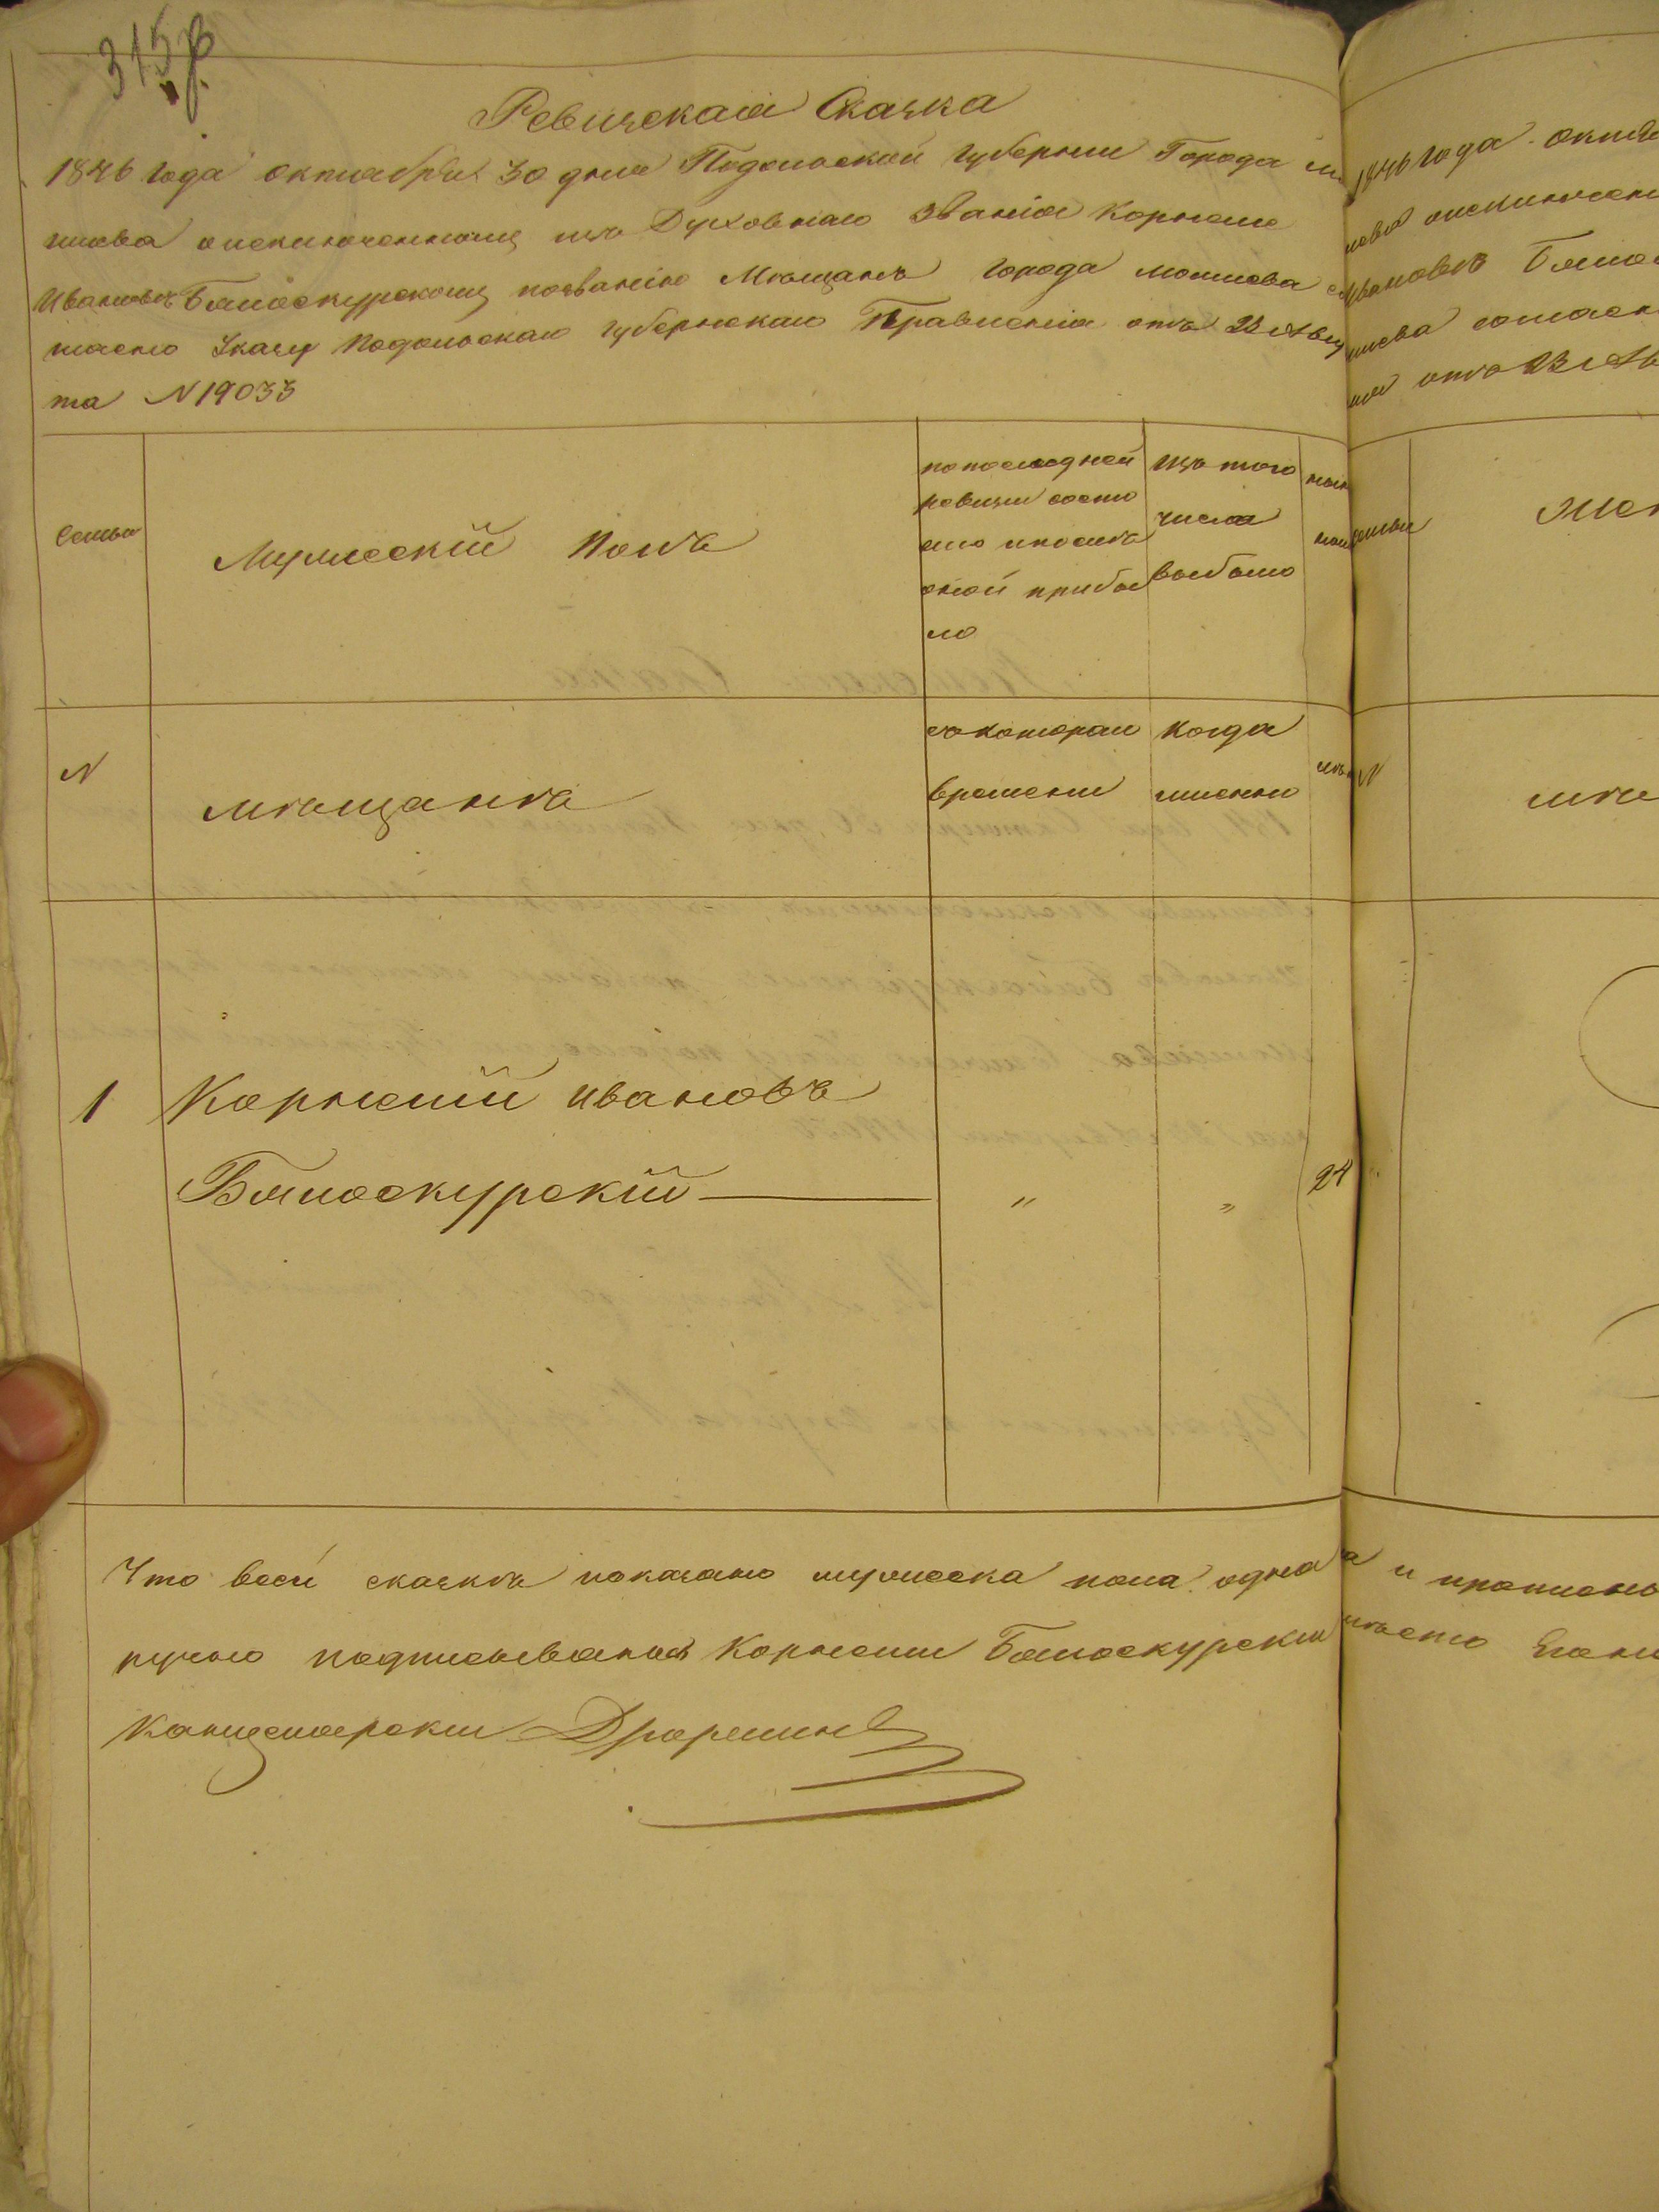 315
Ревизская Сказка
1846 года октября 30 дня Подольской губернии Города мо
гилева о исключенному изъ Духовнаго званія Корнеле
Ивановъ Бялоскурскому по званію Мѣщанъ города могилева со
гласно Указу Подольскаго губернскаго Правленія отъ 23 Авгу
та N 19033
Семьи
Мужескій полъ
по последней
ревизии состо
яло и после
оной прибы
ло
изъ того
числа
выбыло
N
мѣщанъ
съ котораго
времени
когда
именно
1
Корнелий Ивановъ
Бялоскурскій
"
"
24
Что въ сей сказкѣ показано мужеска пола одна
ручно подписывался Корнелии Бялоскурски
Канцелярски
1846 года октя
исключен
Ивановъ Бялос
гилева согласн
отъ 23 Ав
семьи
Жен
N
мѣщ
и прописно
мѣсто